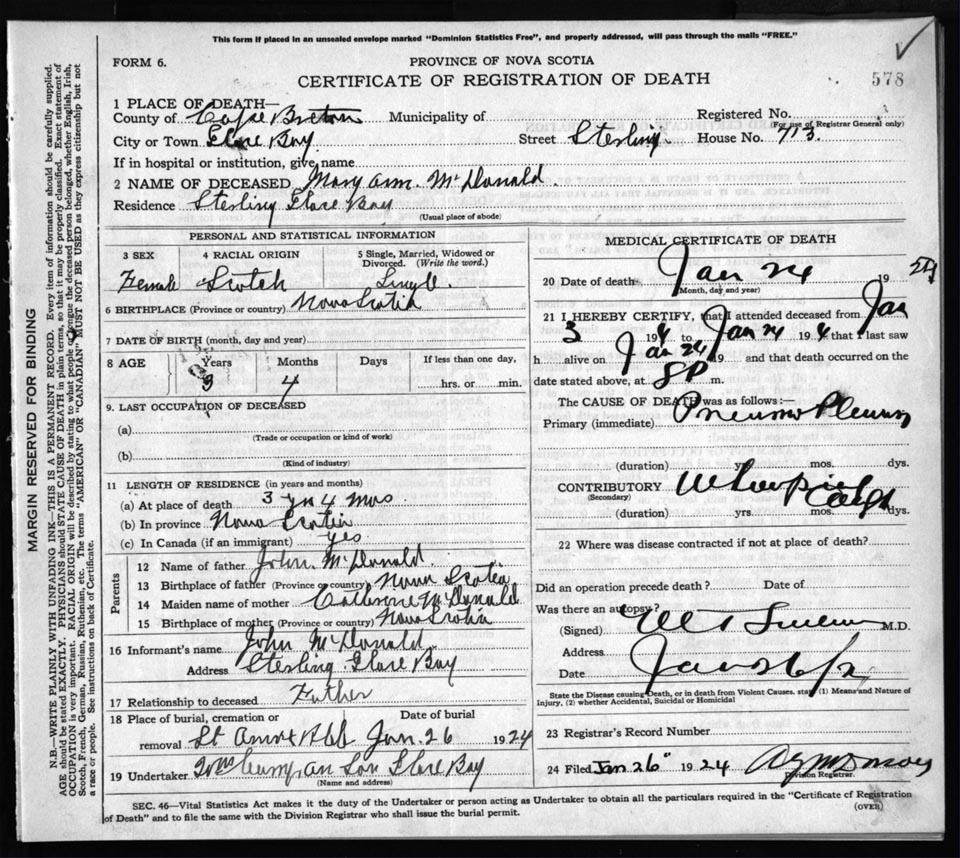 This form if placed in an unsealed envelope marked "Dominion Statistics Free", and properly addressed, will pass through the mails "FREE."
FORM 6.
PROVINCE OF NOVA SCOTIA
CERTIFICATE OF REGISTRATION OF DEATH
578
1 PLACE OF DEATH—
County of Cape Breton Municipality of
Registered No.
(For use of Registrar General only)
City or Town Glace Bay Street Sterling House No. 713
If in hospital or institution, give name
2 NAME OF DECEASED Mary Ann McDonald
Residence Sterling Glace Bay
(Usual place of abode)
PERSONAL AND STATISTICAL INFORMATION
3 SEX 4 RACIAL ORIGIN 5 Single, Married, Widowed or Divorced. (Write the word.)
Female Scotch Single
6 BIRTHPLACE (Province or country) Nova Scotia
7 DATE OF BIRTH (month, day and year)
8 AGE Years Months Days If less than one day,
3 4 hrs. or min.
9. LAST OCCUPATION OF DECEASED
(a)
(Trade or occupation or kind of work)
(b)
(Kind of industry)
11 LENGTH OF RESIDENCE (in years and months)
(a) At place of death 3 yrs 4 mos
(b) In province Nova Scotia
(c) In Canada (if an immigrant) yes
Parents
12 Name of father John McDonald
13 Birthplace of father (Province or country) Nova Scotia
14 Maiden name of mother Catherine McDonald
15 Birthplace of mother (Province or country) Nova Scotia
16 Informant's name John McDonald
Address Sterling Glace Bay
17 Relationship to deceased Father
18 Place of burial, cremation or Date of burial
removal St Anns Jan. 26 1924
19 Undertaker Son Glace Bay
(Name and address)
MEDICAL CERTIFICATE OF DEATH
20 Date of death Jan 24 19 24
(Month, day and year)
21 I HEREBY CERTIFY, that I attended deceased from Jan
3 19 4 to Jan 24 19 4 that I last saw
h alive on Jan 24 19 and that death occurred on the
date stated above, at 8 P m.
The CAUSE OF DEATH was as follows:—
Primary (immediate) Pneumo Pleurisy
(duration) yrs. mos. dys.
CONTRIBUTORY Whooping Cough
(Secondary)
(duration) yrs. mos. dys.
22 Where was disease contracted if not at place of death?
Did an operation precede death? Date of
Was there an autopsy?
(Signed) M.D.
Address
Date Jan 26/2
State the Disease causing Death, or in death from Violent Causes, state (1) Means and Nature of Injury, (2) whether Accidental, Suicidal or Homicidal
23 Registrar's Record Number
24 Filed Jan 26" 1924
Division Registrar.
SEC. 46—Vital Statistics Act makes it the duty of the Undertaker or person acting as Undertaker to obtain all the particulars required in the "Certificate of Registration
of Death" and to file the same with the Division Registrar who shall issue the burial permit.
(OVER)
MARGIN RESERVED FOR BINDING
N.B.—WRITE PLAINLY WITH UNFADING INK—THIS IS A PERMANENT RECORD. Every item of information should be carefully supplied.
AGE should be stated EXACTLY. PHYSICIANS should STATE CAUSE OF DEATH in plain terms, so that it may be properly classified. Exact statement of
OCCUPATION is very important. RACIAL ORIGIN will be described by stating to what people or tongue the deceased person belonged, whether English, Irish,
Scotch, French, German, Russian, Ruthenian, etc. The terms "AMERICAN" or "CANADIAN" MUST NOT BE USED as they express citizenship but not
a race or people. See instructions on back of Certificate.